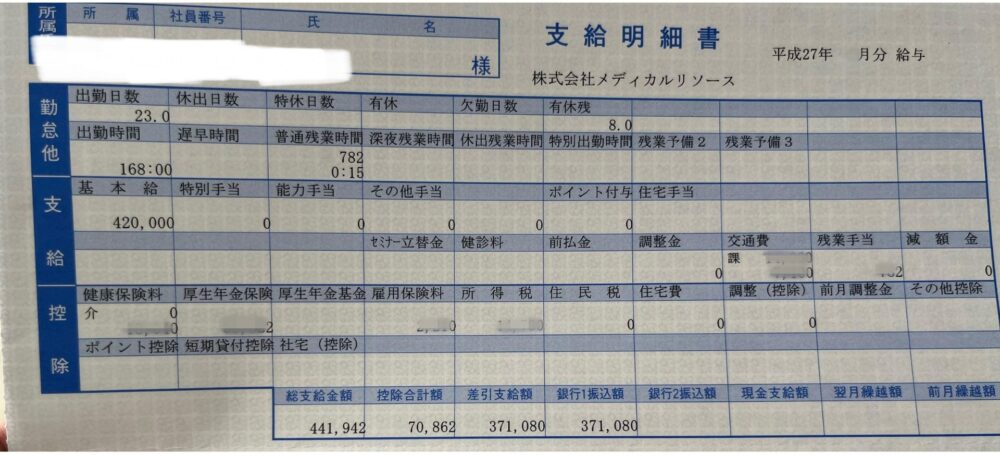 所属 社員番号 氏名
所属
様
支給明細書
平成27年 月分 給与
株式会社メディカルリソース
勤怠他
出勤日数 休出日数 特休日数 有休 欠勤日数 有休残
23.0 8.0
出勤時間 遅早時間 普通残業時間 深夜残業時間 休出残業時間 特別出勤時間 残業予備2 残業予備3
782
168:00 0:15
支給
基本給 特別手当 能力手当 その他手当 ポイント付与 住宅手当
420,000 0 0 0 0 0
セミナー立替金 健診料 前払金 調整金 交通費 残業手当 減額金
課
0 0
控除
健康保険料 厚生年金保険 厚生年金基金 雇用保険料 所得税 住民税 住宅費 調整(控除) 前月調整金 その他控除
介 0
0 0 0
ポイント控除 短期貸付控除 社宅(控除)
総支給金額 控除合計額 差引支給額 銀行1振込額 銀行2振込額 現金支給額 翌月繰越額 前月繰越額
441,942 70,862 371,080 371,080